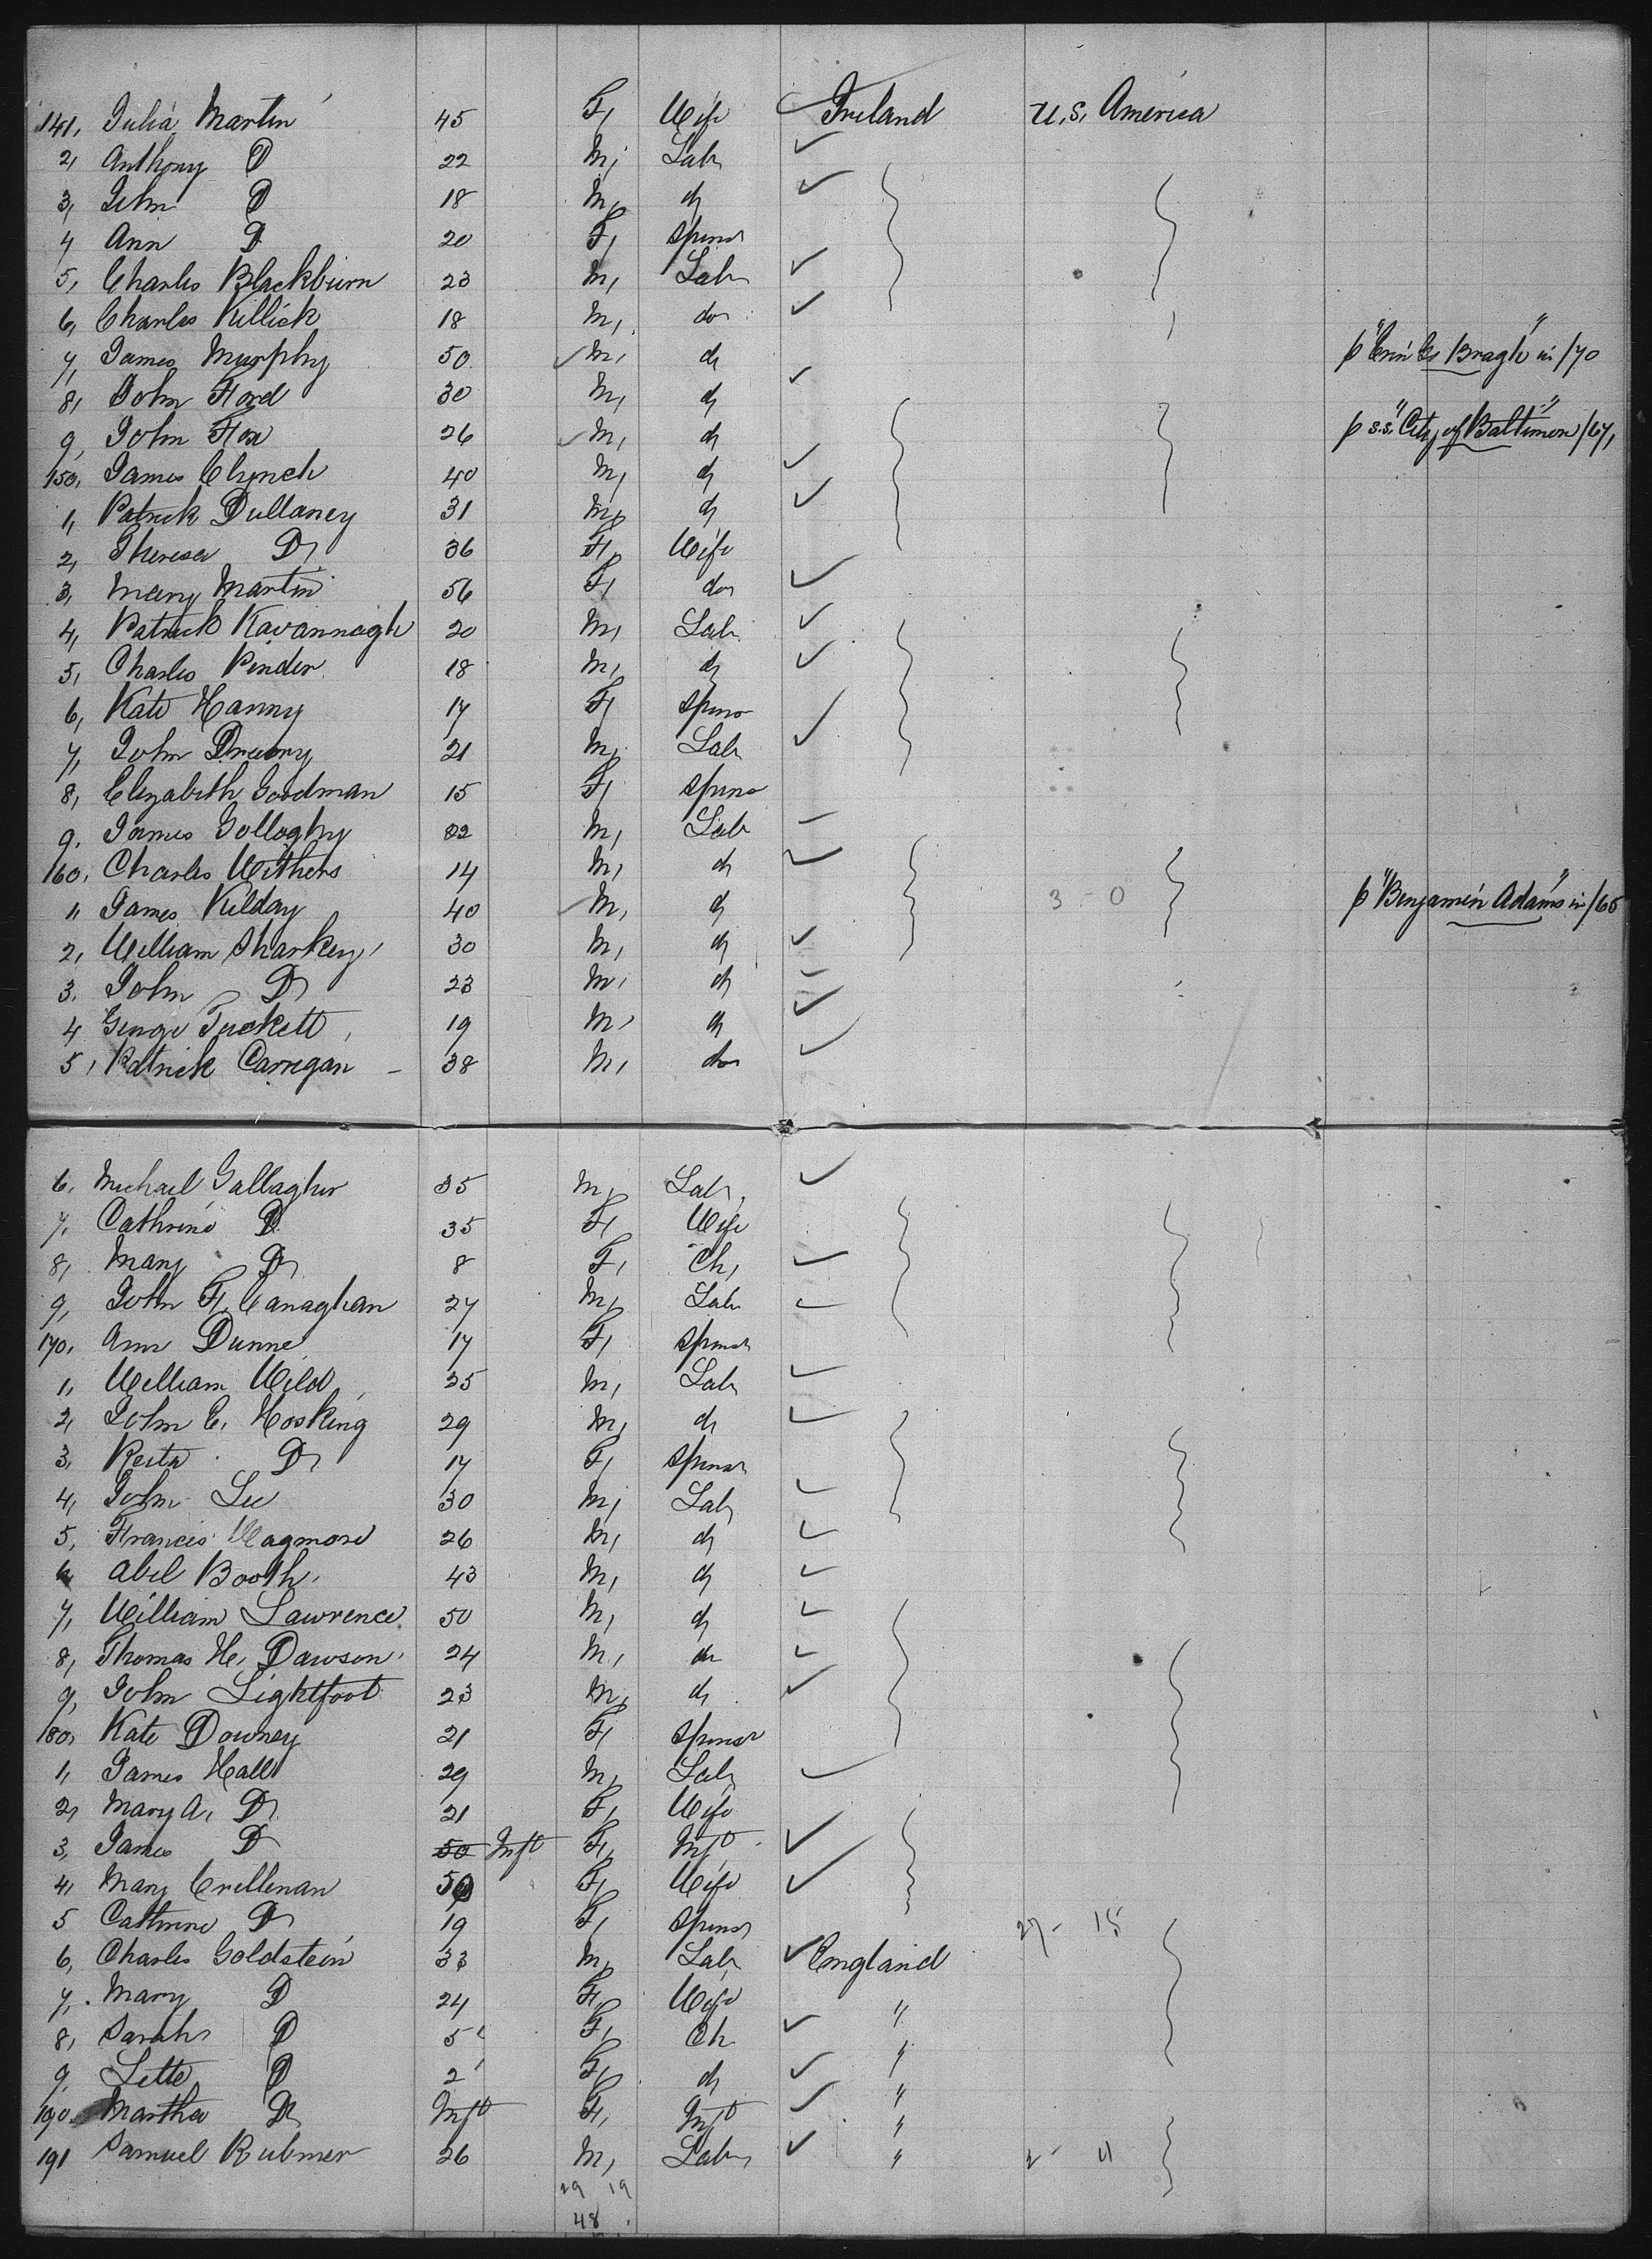 141, Julia Martin 45 F, Wife Ireland U.S. America
2, Anthony Do 22 M, Lab
3, John Do 18 M, do
4 Ann Do 20 F, Spinsr
5, Charles Blackburn 23 M, Lab
6, Charles Killick 18 M, do
7, James Murphy 50 M, do p "Erin Go Bragh" in /70
8, John Ford 30 M, do
9, John Fox 26 M, do p s.s. "City of Baltimore" /67,
150, James Clynch 40 M, do
1, Patrick Dullaney 31 M, do
2, Theresa Do 36 F, Wife
3, Mary Martin 56 F, do
4, Patrick Kavannagh 20 M, Lab
5, Charles Pinder 18 M, do
6, Kate Hanny 17 F, Spinsr
7, John Drury 21 M, Lab
8, Elizabeth Goodman 15 F, Spinsr
9, James Golloghy 32 M, Lab
160, Charles Withers 14 M, do
1, James Kilday 40 M, do 3 - 0 p "Benjamin Adams" in /65
2, William Sharkey 30 M, do
3, John Do 23 M, do
4 George Tuckett 19 M, do
5, Patrick Carrigan 38 M, do
6, Michael Gallagher 35 M, Lab
7, Cathrine Do 35 F, Wife
8, Mary Do 8 F, Ch,
9, John F. Canaghan 27 M, Lab
170, Ann Dunne 17 F, Spinsr
1, William Wild 35 M, Lab
2, John C. Hosking 29 M, do
3, Reita Do 17 F, Spinsr
4, John Lee 30 M, Lab
5, Francis Wagmore 26 M, do
6 Abel Booth 43 M, do
7, William Lawrence 50 M, do
8, Thomas H. Dawson 24 M, do
9, John Lightfoot 23 M, do
180, Kate Downey 21 F, Spinsr
1, James Hall 29 M, Lab
2, Mary A. Do 21 F, Wife
3, James Do 50 Inft F, Inft
4, Mary Crellinan 50 F, Wife
5 Cathrine Do 19 F, Spinsr 27 - 15
6, Charles Goldstein 33 M, Lab England
7, Mary Do 24 F, Wife "
8, Sarah Do 5 F, Ch "
9, Lette Do 2 F, do "
190, Martha Do Inft F, Inft "
191 Samuel Rubmer 26 M, Lab " 2 - 4
29 19
48